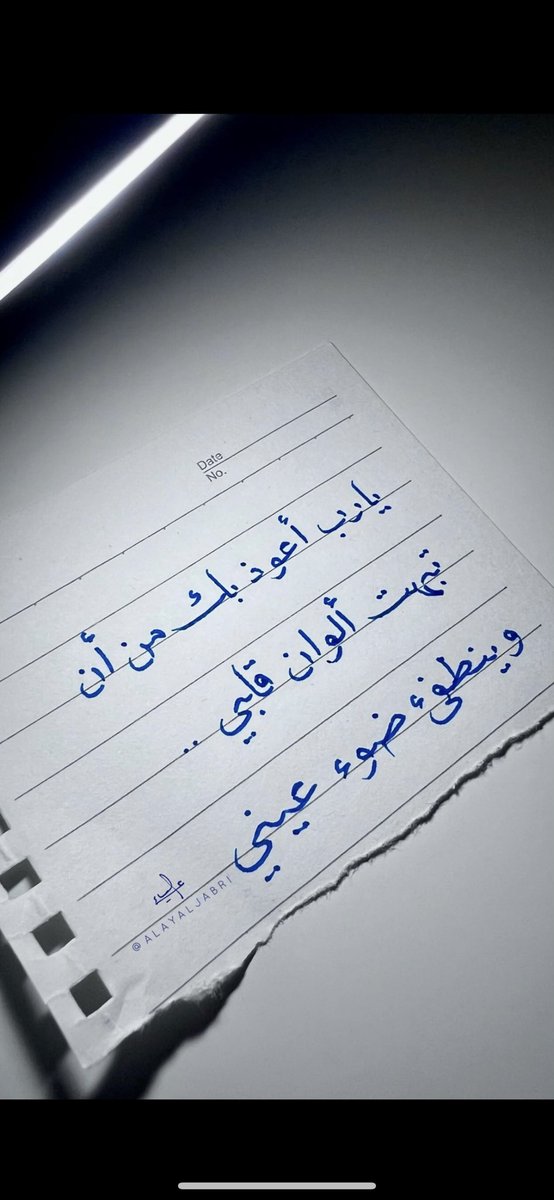 Date
No.
يارب أعوذ بك من أن
تبهت ألوان قلبي ..
وينطفئ ضوء عيني
علياء
@ALAYALJABRI